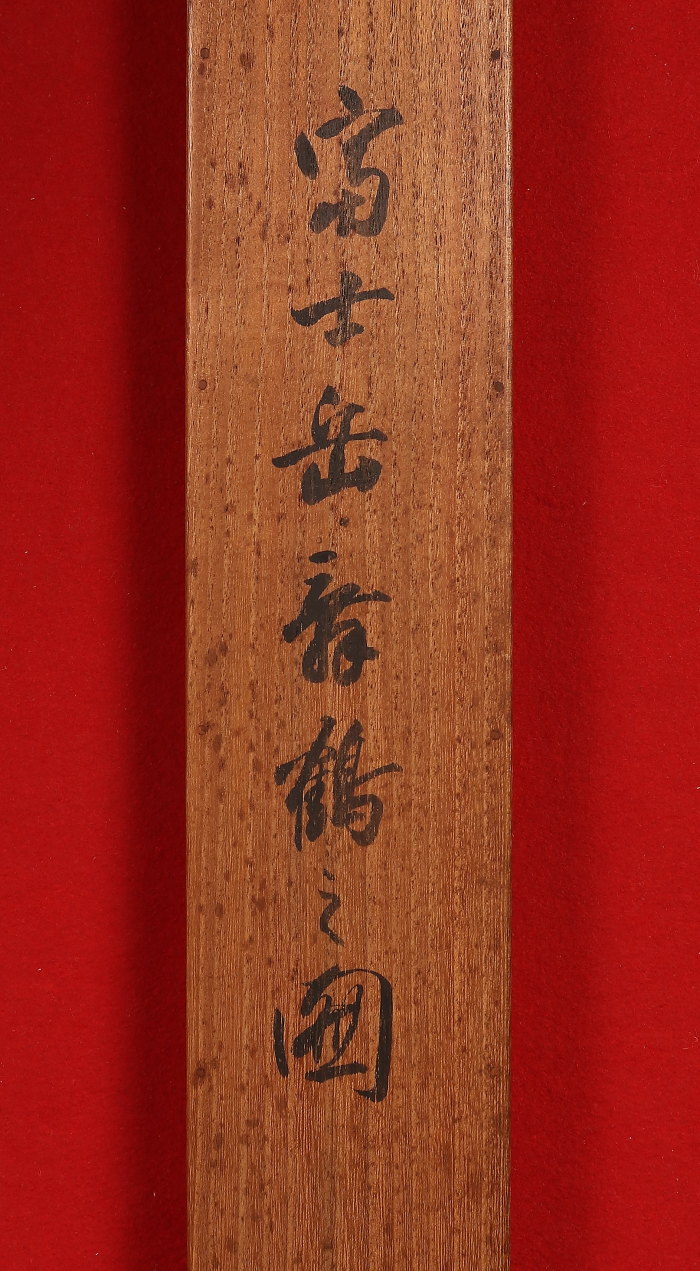 富士岳舞鶴之図